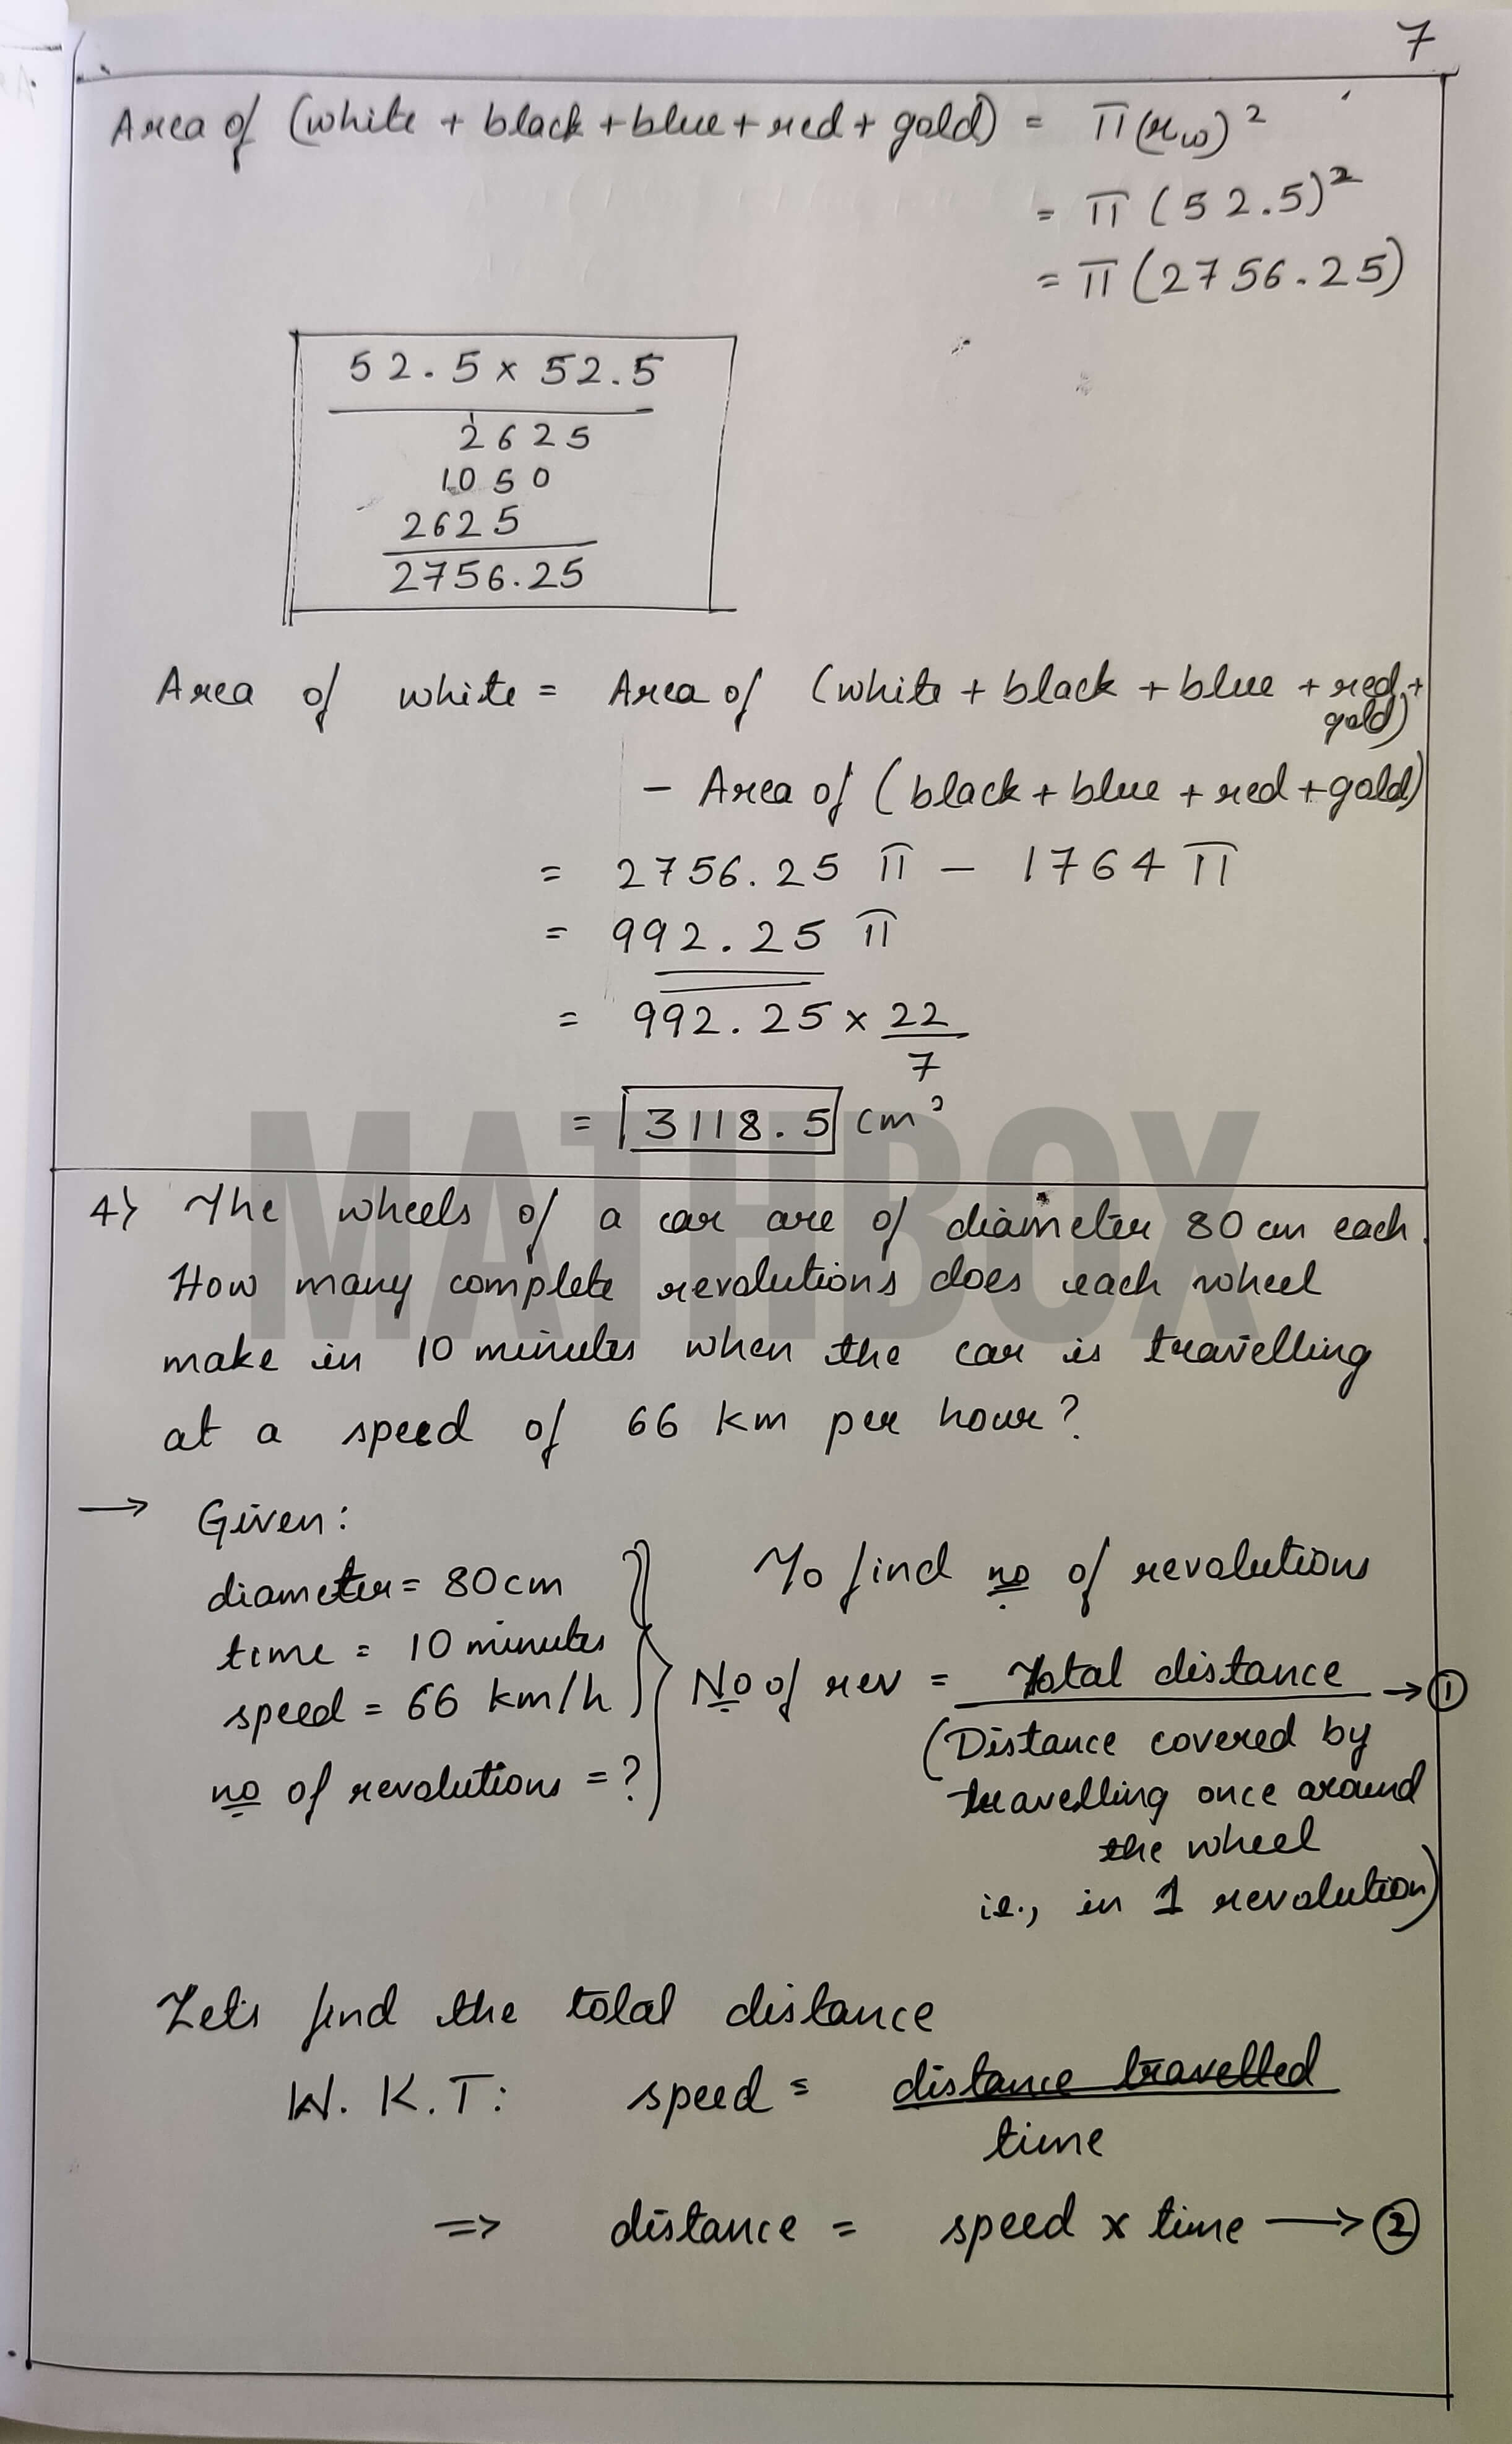 7
Area of (white + black + blue + red + gold) = π(rw)²
= π(52.5)²
= π(2756.25)
52.5 x 52.5
2625
1050
2625
2756.25
Area of white = Area of (white + black + blue + red + gold)
- Area of (black + blue + red + gold)
= 2756.25 π - 1764 π
= 992.25 π
= 992.25 x 22/7
= 3118.5 cm²
MATHBOX
4) The wheels of a car are of diameter 80 cm each.
How many complete revolutions does each wheel
make in 10 minutes when the car is travelling
at a speed of 66 km per hour?
→ Given:
diameter = 80cm
time = 10 minutes
speed = 66 km/h
no of revolutions = ?
To find no of revolutions
No of rev = Total distance → ①
(Distance covered by
travelling once around
the wheel
ie., in 1 revolution)
Let's find the total distance
W.K.T: speed = distance travelled
time
=> distance = speed x time → ②